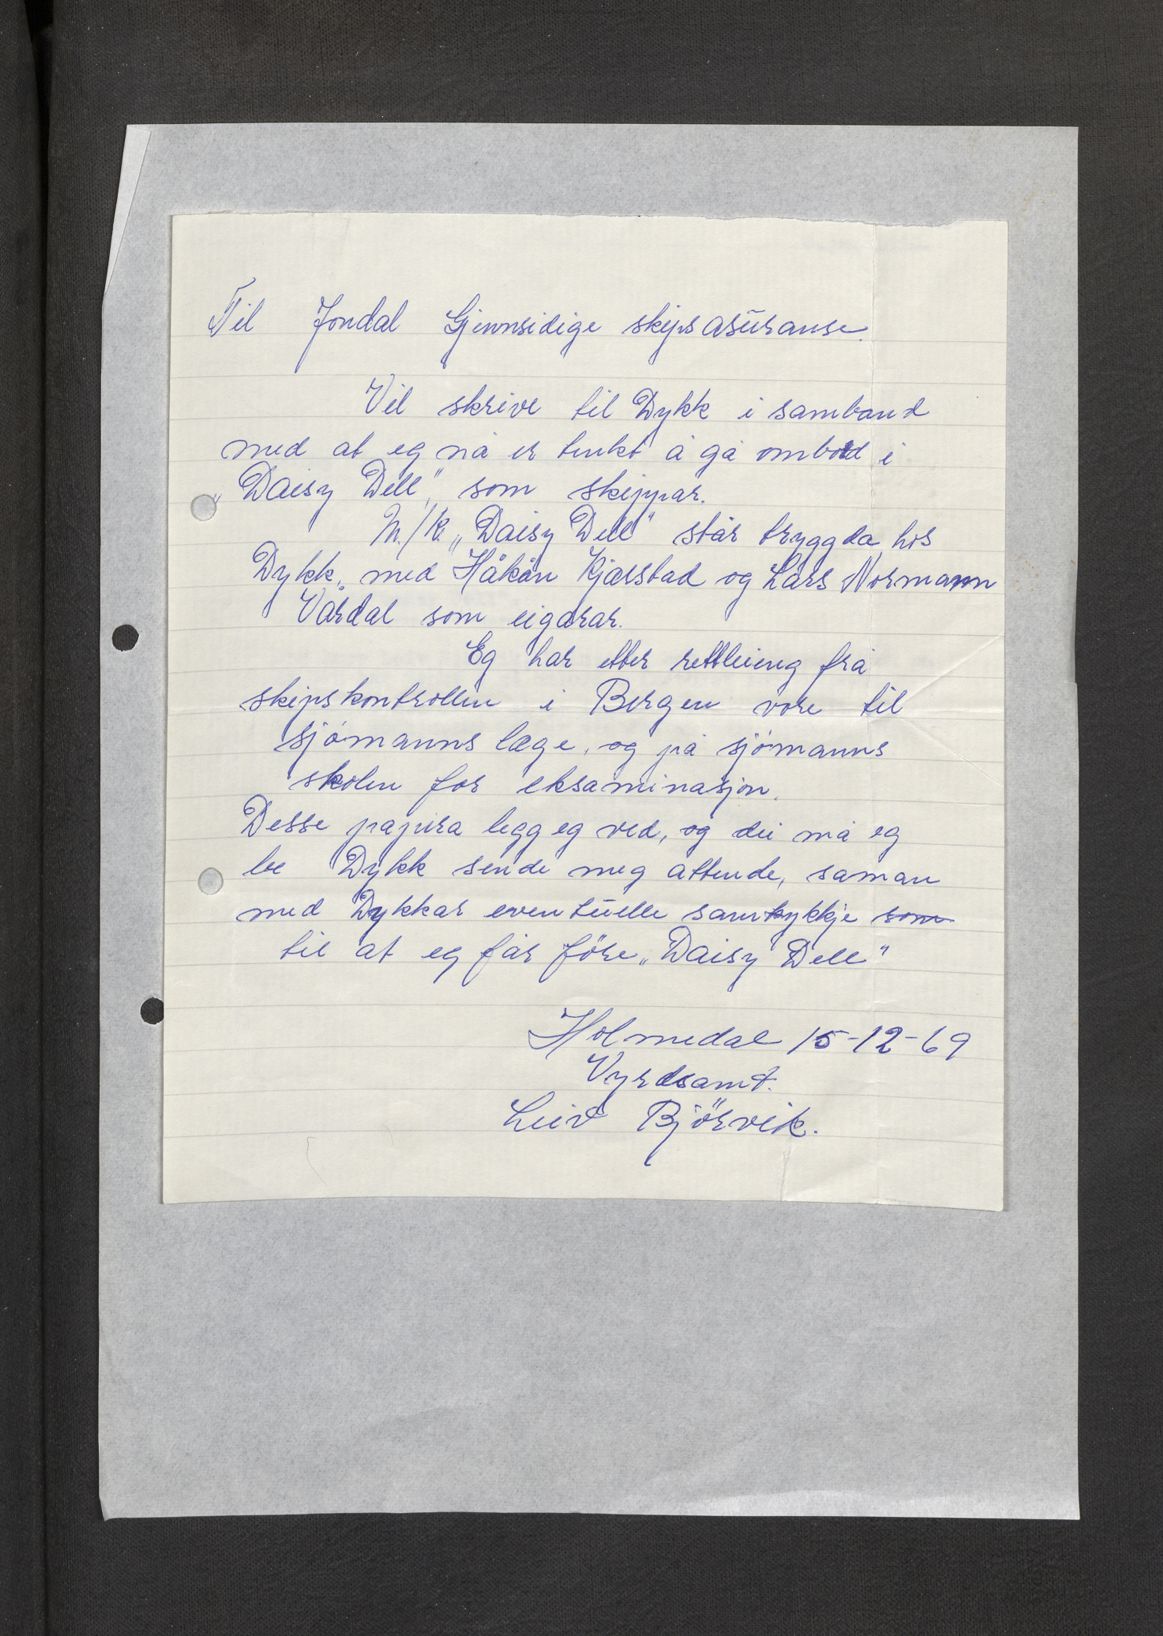 Til Jondal Gjennsidige skipsasuranse.
Vil skrive til Dykk i samband
med at eg nå er tenkt å gå ombord i
„Daisy Dell", som skippar.
M/K „Daisy Dell" står tryggda hos
Dykk, med Håkon Kjærstad og Lars Normann
Vårdal som eigarar.
Eg har etter rettleiing frå
skipskontrollen i Bergen vore til
sjømanns læge, og på sjømanns
skolen for eksaminasjon.
Desse papira legg eg ved, og dei må eg
be Dykk sende meg attende, saman
med Dykkar eventuelle samtykkje som
til at eg får före „Daisy Dell"
Holmedal 15-12-69
Vyrdsamt.
Leiv Björvik.